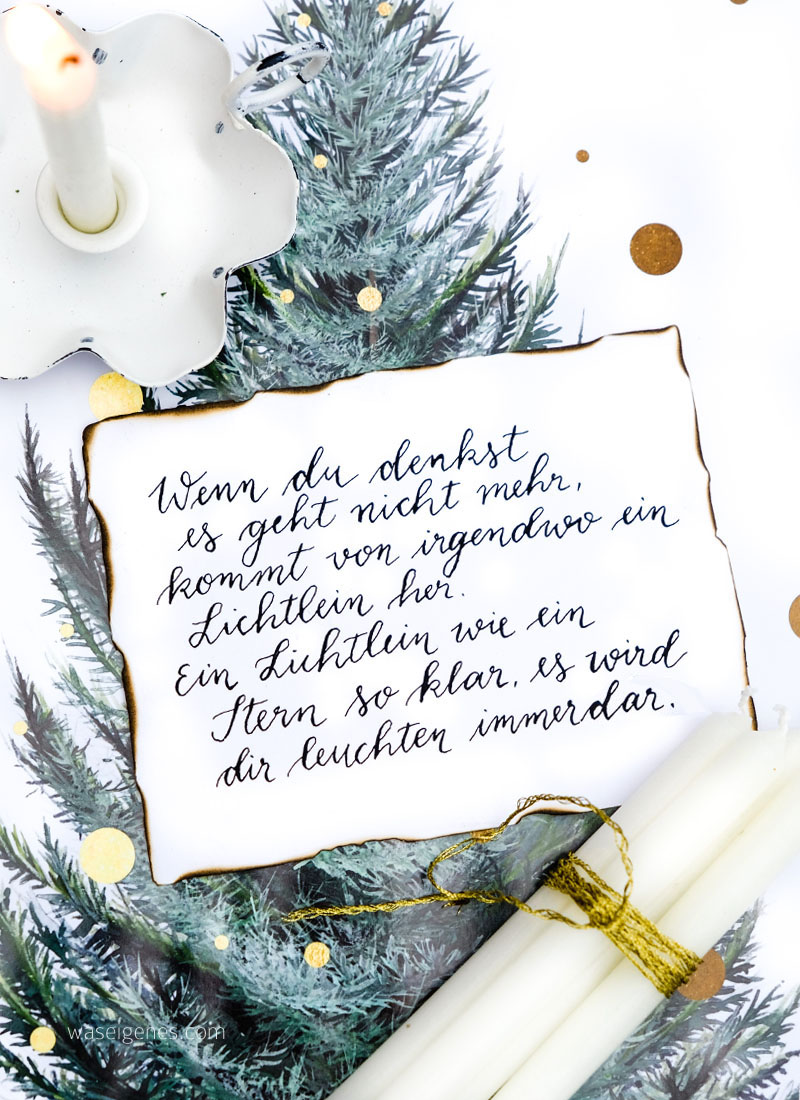 Wenn du denkst
es geht nicht mehr,
kommt von irgendwo ein
Lichtlein her.
Ein Lichtlein wie ein
Stern so klar, es wird
dir leuchten immerdar.
waseigenes.com